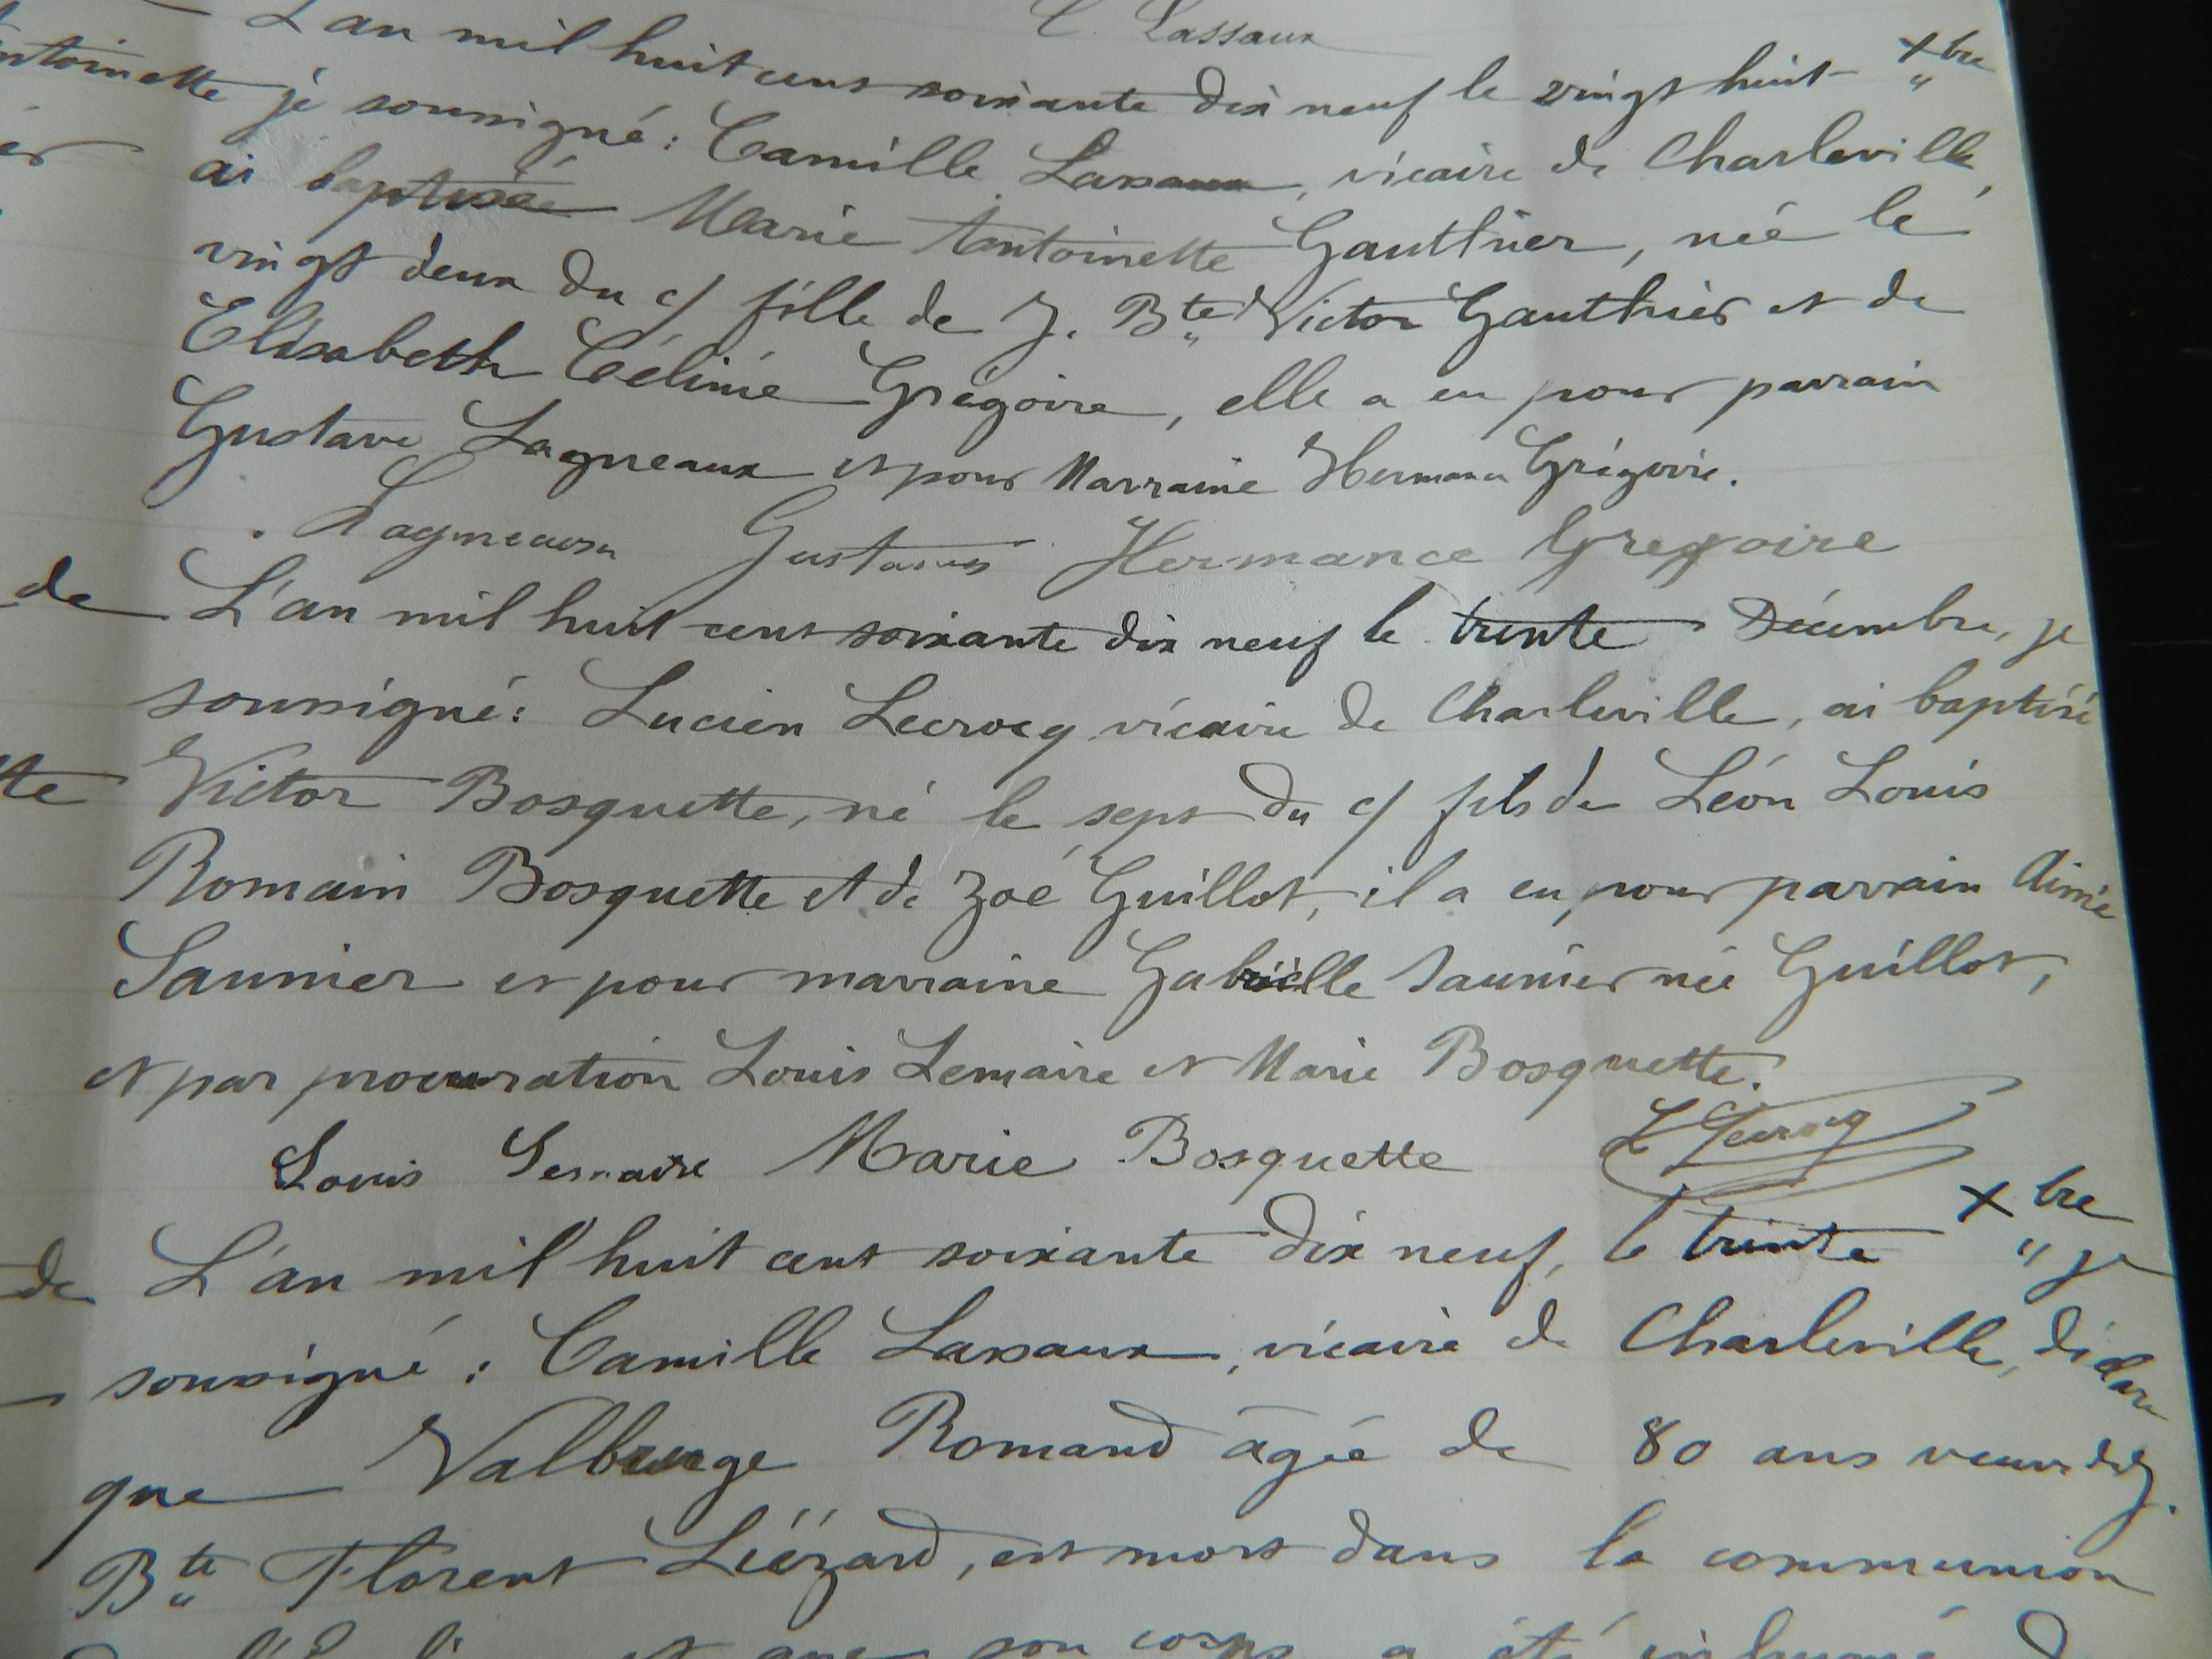 C. Lassaux
L'an mil huit cent soixante dix neuf le vingt huit Xbre
ntoinette je soussigné : Camille Lassaux, vicaire de Charleville,
er ai baptisé Marie Antoinette Gauthier, née le
vingt deux du c/ fille de J. Bte Victor Gauthier et de
Elisabeth Célinie Grégoire, elle a eu pour parrain
Gustave Lagneaux et pour Marraine Hermance Grégoire.
Lagneaux Gustave Hermance Gregoire
de L'an mil huit cent soixante dix neuf le trente Décembre, je
soussigné : Lucien Lecrocq vicaire de Charleville, ai baptisé
tte Victor Bosquette, né le sept du c/ fils de Léon Louis
Romain Bosquette et de Zoé Guillot, il a eu pour parrain Aimé
Saunier et pour marraine Gabrielle Saunier née Guillot,
et par procuration Louis Lemaire et Marie Bosquette.
Louis Lemaire Marie Bosquette L Lecrocq
de L'an mil huit cent soixante dix neuf, le trente Xbre je
soussigné : Camille Lassaux, vicaire de Charleville, déclare
que Valburge Romand âgée de 80 ans veuve de J.
Bte Florent Liézard, est mort dans la communion
de l'église et que son corps a été inhumé